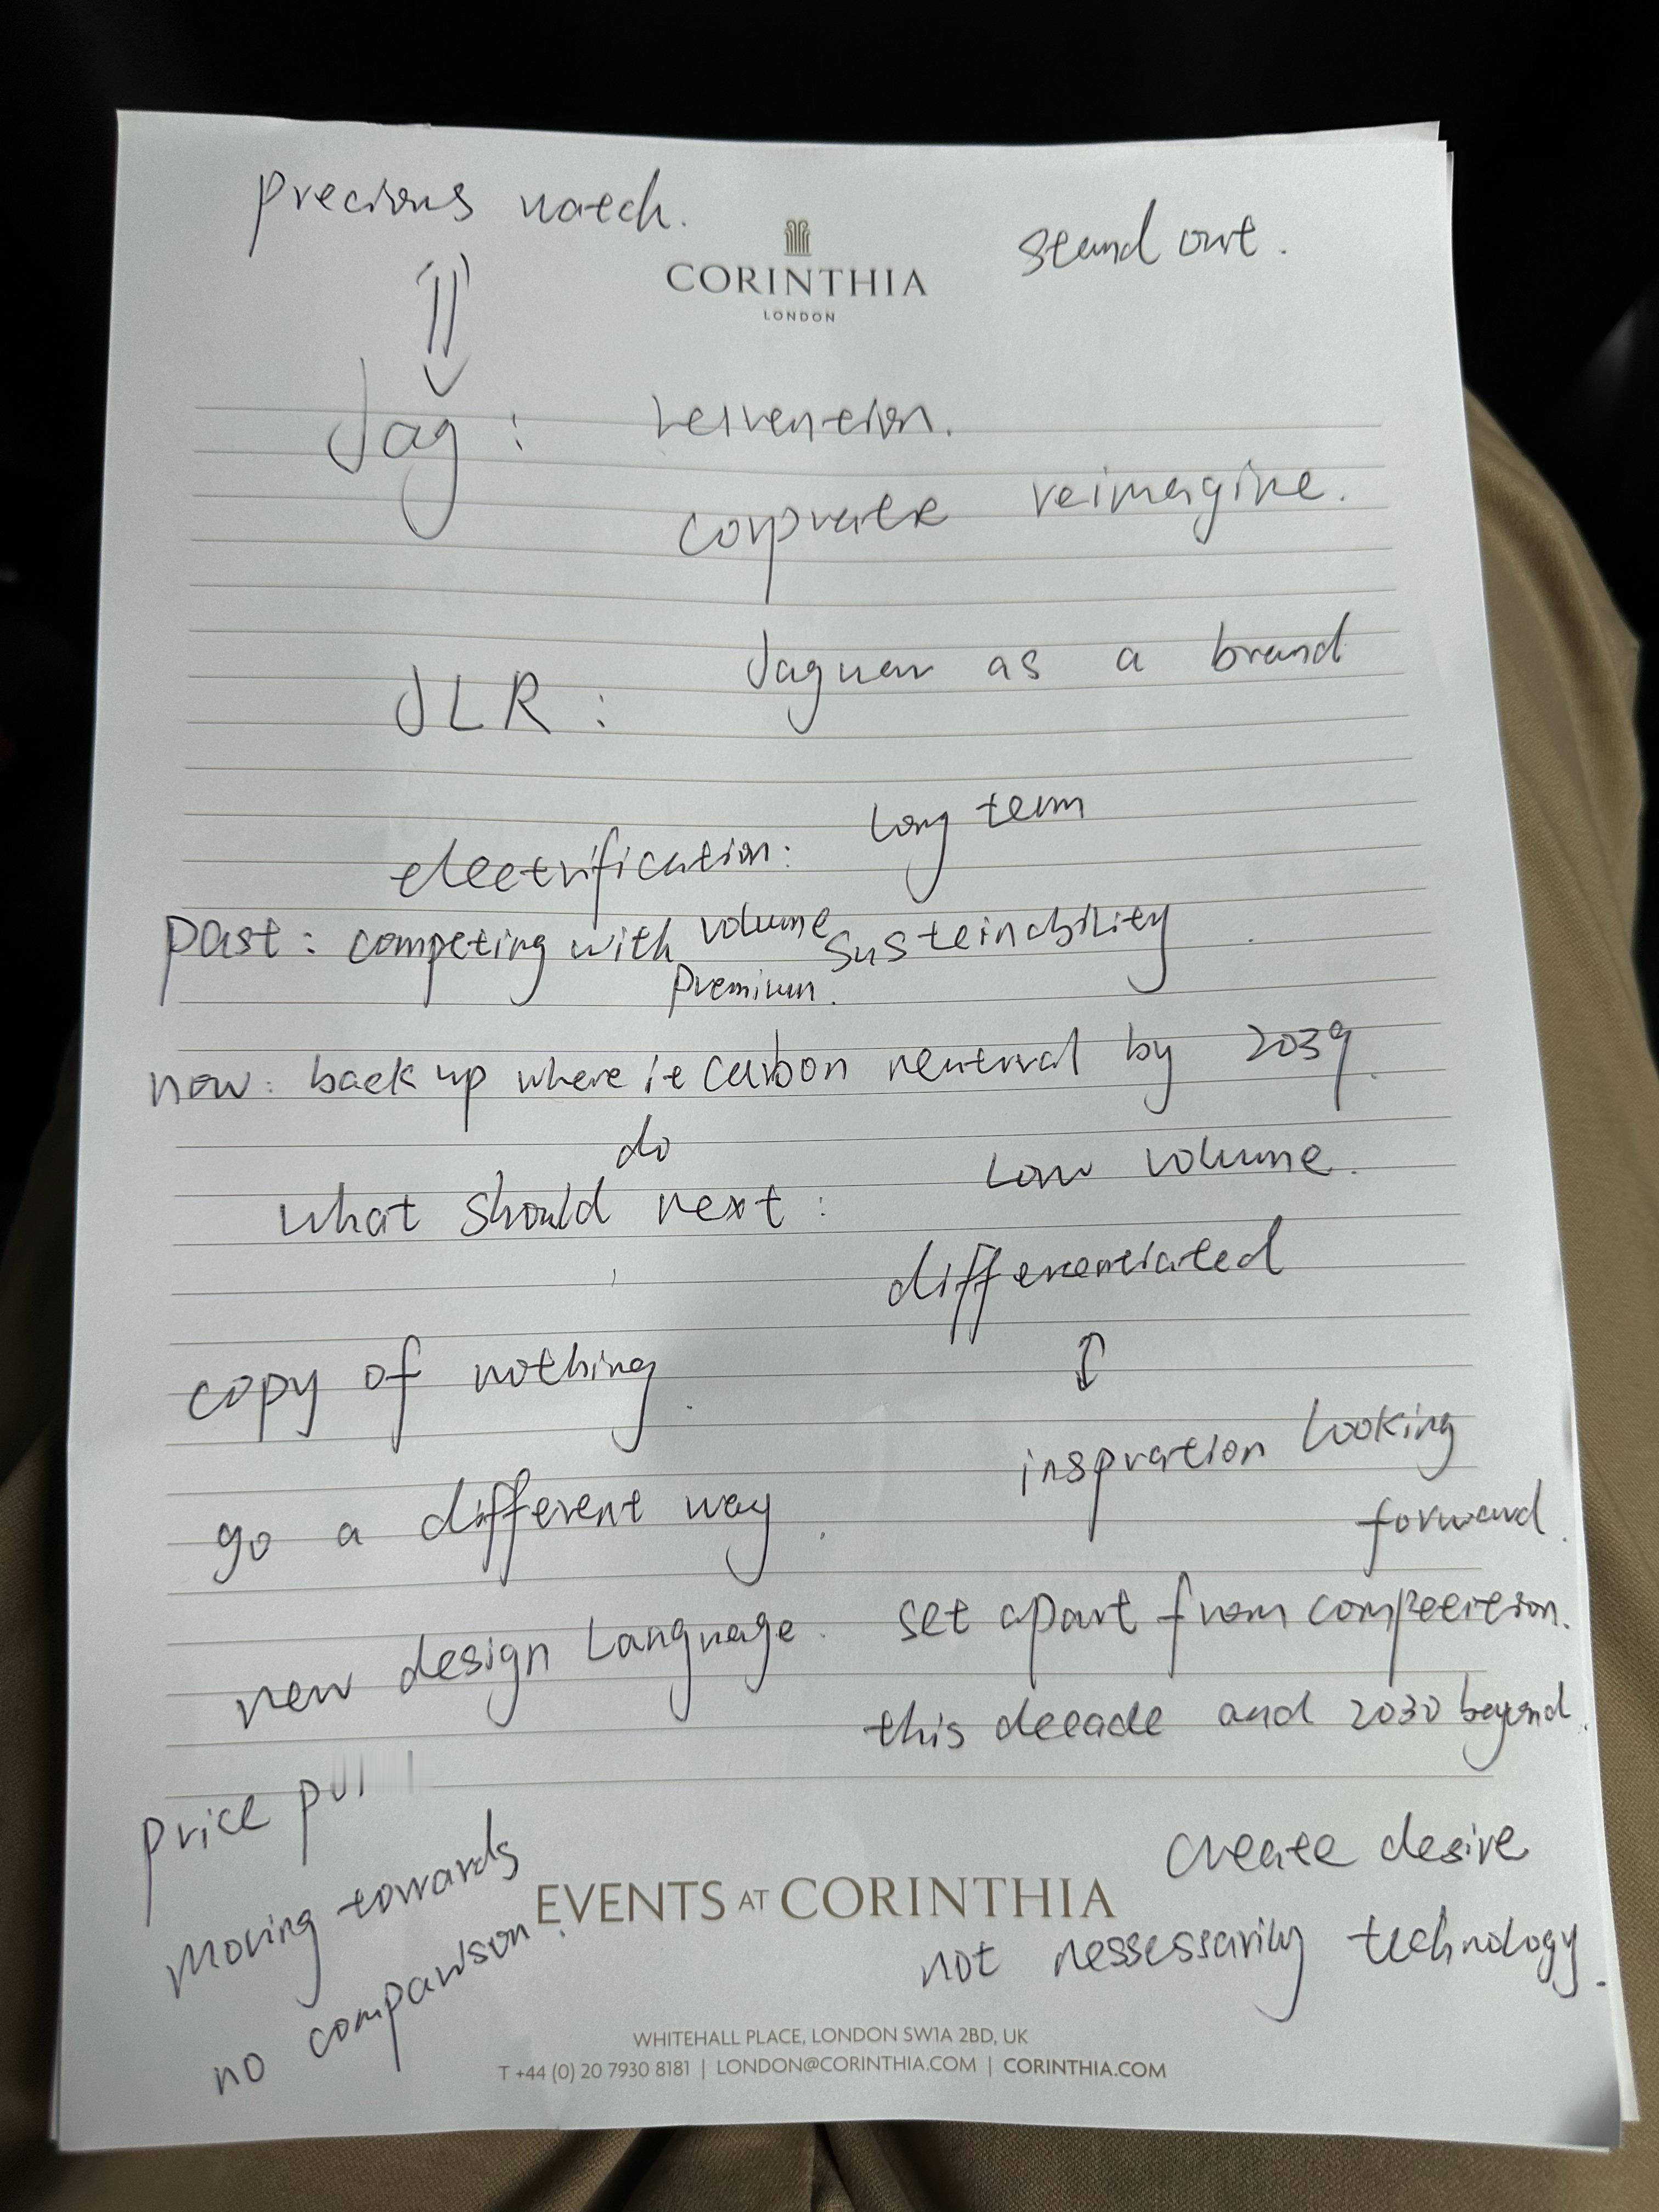 precious watch.
stand out.
CORINTHIA
LONDON
Jag: reinvention.
corporate reimagine.
JLR: Jaguar as a brand
electrification: long term
past: competing with volume sustainability
premium.
now: back up where it carbon neutral by 2039.
do
what should next: low volume.
differentiated
copy of nothing.
inspration looking
forward.
go a different way.
new design language. set apart from competition.
this decade and 2030 beyond.
price
moving towards
no comparison.
create desire
not nessessarily technology.
EVENTS AT CORINTHIA
WHITEHALL PLACE, LONDON SW1A 2BD, UK
T +44 (0) 20 7930 8181 | LONDON@CORINTHIA.COM | CORINTHIA.COM